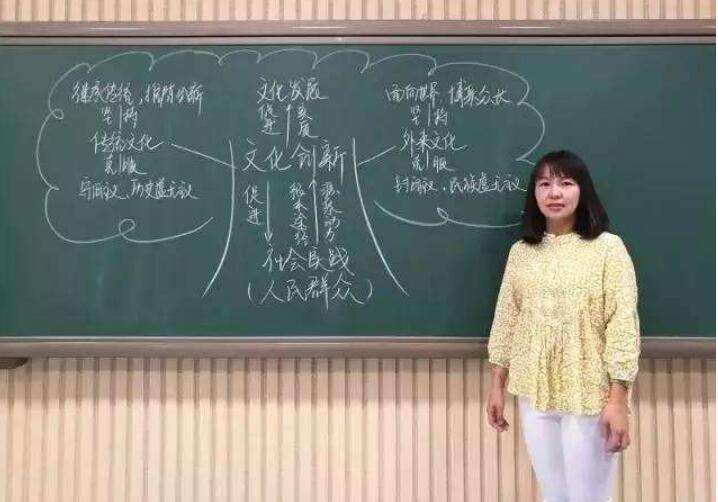 继承传统,推陈出新
坚持
传统文化
克服
守旧主义,历史虚无主义
文化发展
促进
发展
文化创新
促进
根本途径
源泉动力
社会实践
(人民群众)
面向世界,博采众长
坚持
外来文化
克服
封闭主义,民族虚无主义